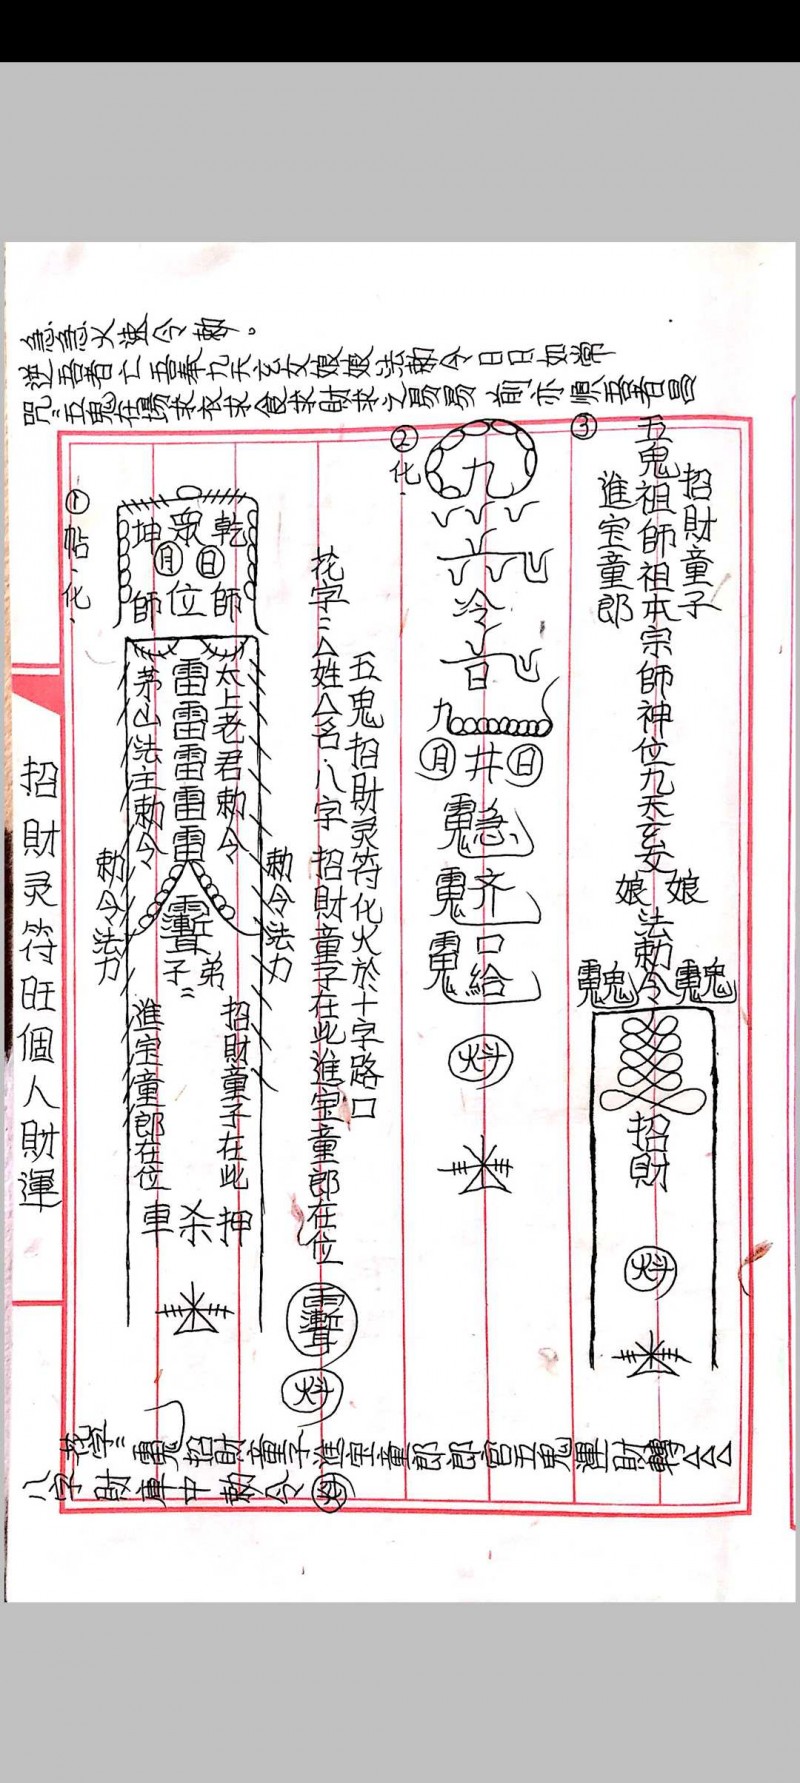 招財灵符旺個人財運
咒=五鬼在場求衣求食求財求之易易以前亦順吾者昌
逆吾者亡吾奉九天玄女娘娘法勅令日日如常
急急火速令勅。
①帖、化、
乾
眾
坤
日
月
師
位
師
太上老君勅令
雷雷雷雷雷
茅山法主勅令
勅令法力
勅令法力
弟子=
招財童子在此
進宝童郎在位
押
杀
車
五鬼招財灵符化火於十字路口
花字=△姓△名八字招財童子在此進宝童郎在位
②化、
九
冷
九
日
井
月
急
齐
口給
③
招財童子
五鬼祖師祖本宗師神位九天玄女
進宝童郎
娘
娘
法勅令
招財
花字= 招財童子進宝童郎郎官五鬼運財轉△△△
八字財庫中勅令